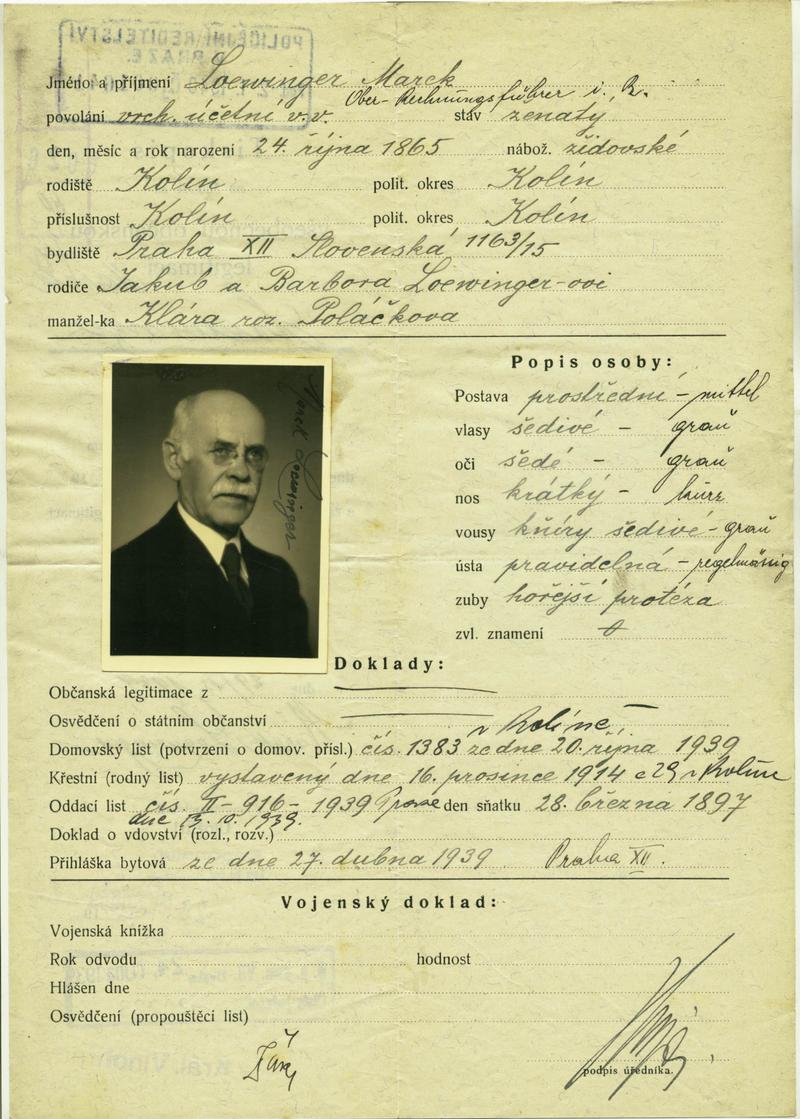 Jméno a příjmení Loewinger Marek
Ober-Rechnungsführer i. R.
povolání vrch. účetní v.v. stav ženatý
den, měsíc a rok narození 24. října 1865 nábož. židovské
rodiště Kolín polit. okres Kolín
příslušnost Kolín polit. okres Kolín
bydliště Praha XII Slovenská 1163/15
rodiče Jakub a Barbora Loewinger-ovi
manžel-ka Klára roz. Poláčkova
Popis osoby:
Postava prostřední - mittel
vlasy šedivé - grau
oči šedé - grau
nos krátký - kurz
vousy kníry šedivé - grau
ústa pravidelná - regelmäsig
zuby hořejší protéza
zvl. znamení
Marek Loewinger
Doklady:
Občanská legitimace z
Osvědčení o státním občanství
v Kolíně
Domovský list (potvrzení o domov. přísl.) čís. 1383 ze dne 20. října 1939
Křestní (rodný list) vystavený dne 16. prosince 1914 v Kolíně
Oddací list čís. II-916-1939 den sňatku 28. března 1897
dne 1939.
Doklad o vdovství (rozl., rozv.)
Přihláška bytová ze dne 27. dubna 1939 Praha XII.
Vojenský doklad:
Vojenská knížka
Rok odvodu hodnost
Hlášen dne
Osvědčení (propouštěcí list)
podpis úředníka.